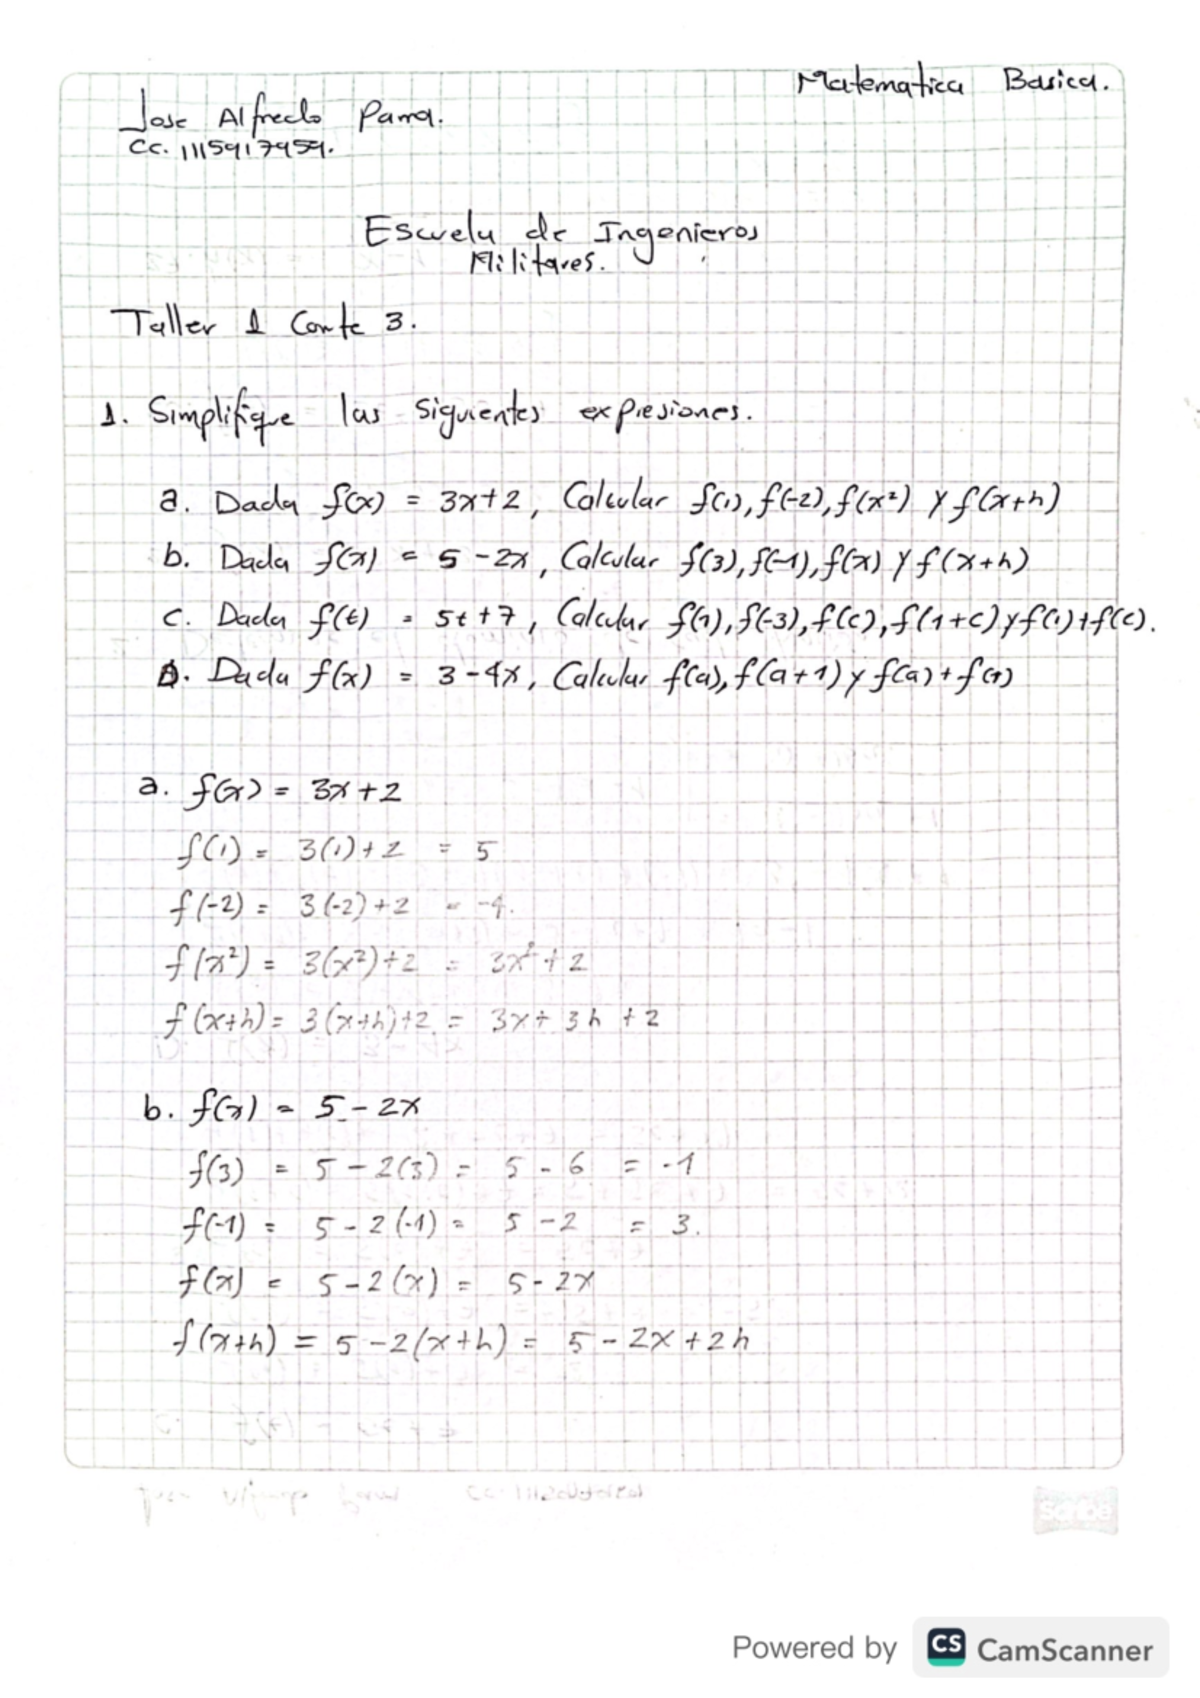 Matematica Basica.
Jose Alfredo Parra.
CC. 1115917959.
Escuela de Ingenieros
Militares.
Taller 1 Corte 3.
1. Simplifique las siguientes expresiones.
a. Dada f(x) = 3x+2, Calcular f(1), f(-2), f(x²) y f(x+h)
b. Dada f(x) = 5-2x, Calcular f(3), f(-1), f(x) y f(x+h)
c. Dada f(t) = 5t+7, Calcular f(1), f(-3), f(c), f(1+c) y f(1)+f(c).
D. Dada f(x) = 3-4x, Calcular f(a), f(a+1) y f(a)+f(1)
a. f(x) = 3x+2
f(1) = 3(1)+2 = 5
f(-2) = 3(-2)+2 = -4.
f(x²) = 3(x²)+2 = 3x²+2
f(x+h) = 3(x+h)+2 = 3x+3h+2
b. f(x) = 5-2x
f(3) = 5-2(3) = 5-6 = -1
f(-1) = 5-2(-1) = 5-2 = 3.
f(x) = 5-2(x) = 5-2x
f(x+h) = 5-2(x+h) = 5-2x+2h
Scribe
Powered by CS CamScanner